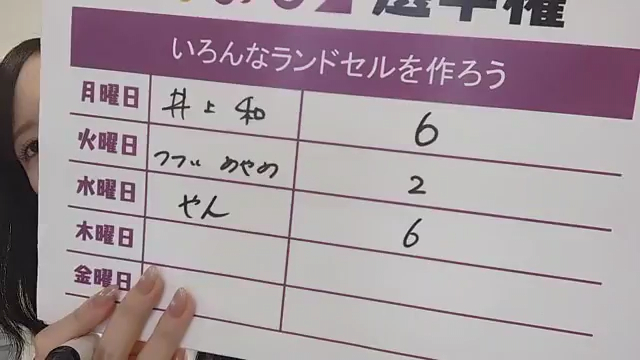 選手権
いろんなランドセルを作ろう
月曜日 井上和 6
火曜日 つづい めやめ 2
水曜日 やん 6
木曜日
金曜日